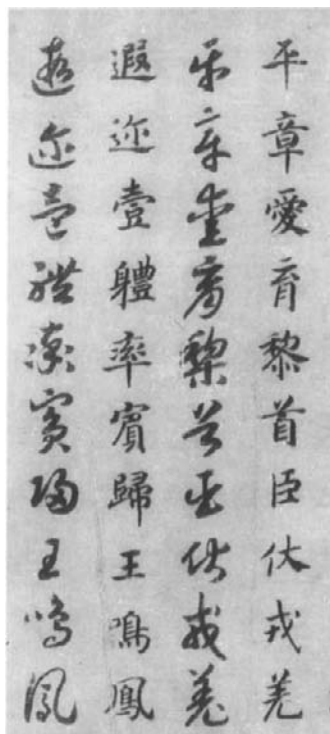 平章愛育黎首臣伏戎羌
平章愛育黎首臣伏戎羌
遐迩壹軆率賓歸王鳴鳳
遐迩壹軆率賓歸王鳴鳳